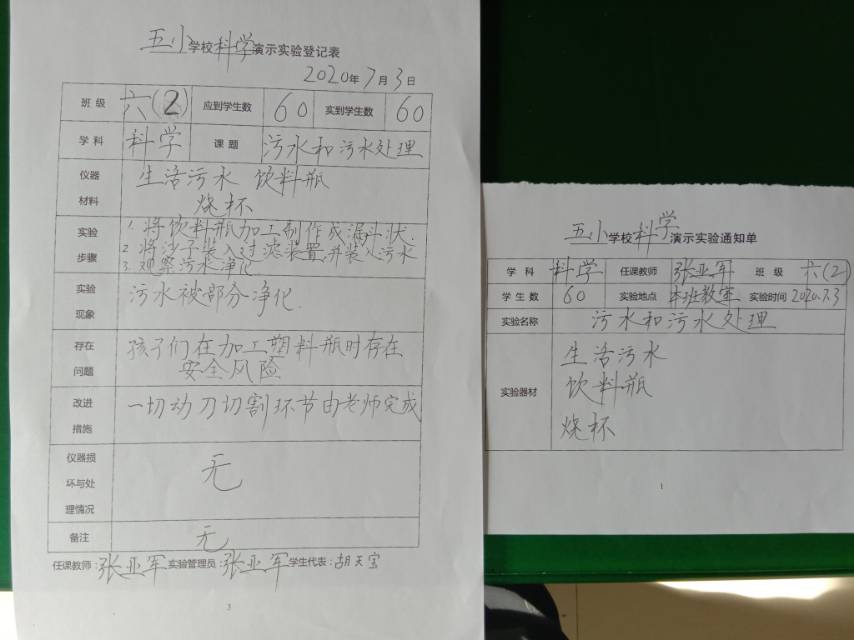 五小学校科学演示实验登记表
2020年7月3日
班级 六(2) 应到学生数 60 实到学生数 60
学科 科学 课题 污水和污水处理
仪器材料 生活污水 饮料瓶
烧杯
实验步骤 1. 将饮料瓶加工制作成漏斗状.
2 将沙子装入过滤装置,并装入污水
3. 观察污水净化
实验现象 污水被部分净化.
存在问题 孩子们在加工塑料瓶时存在
安全风险
改进措施 一切动刀切割环节由老师完成
仪器损坏与处理情况 无
备注 无
任课教师:张亚军 实验管理员:张亚军 学生代表:胡天宝
3
五小学校科学演示实验通知单
学科 科学 任课教师 张亚军 班级 六(2)
学生数 60 实验地点 本班教室 实验时间 2020.7.3
实验名称 污水和污水处理
实验器材 生活污水
饮料瓶
烧杯
1